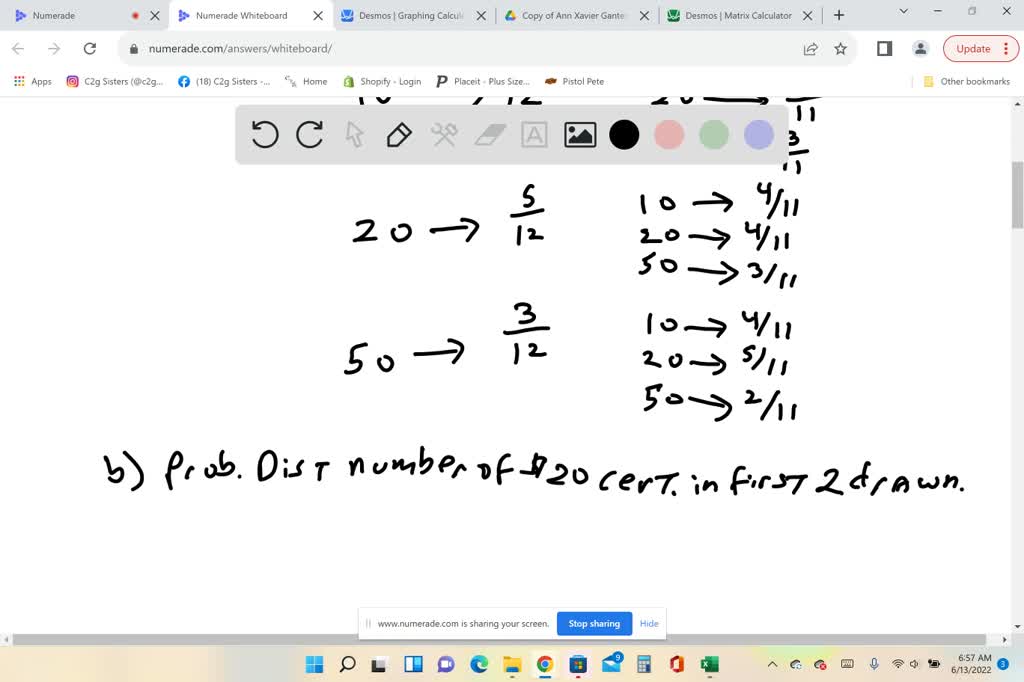 Numerade
Numerade Whiteboard
Desmos | Graphing Calcul
Copy of Ann Xavier Gante
Desmos | Matrix Calculator
numerade.com/answers/whiteboard/
Update
Apps
C2g Sisters (@c2g...
(18) C2g Sisters -...
Home
Shopify - Login
Placeit - Plus Size...
Pistol Pete
Other bookmarks
11
3
11
A
20 → 5/12
10 → 4/11
20 → 4/11
50 → 3/11
50 → 3/12
10 → 4/11
20 → 5/11
50 → 2/11
b) Prob. Dist number of $20 cert. in first 2 drawn.
www.numerade.com is sharing your screen.
Stop sharing
Hide
9
6:57 AM
6/13/2022
3